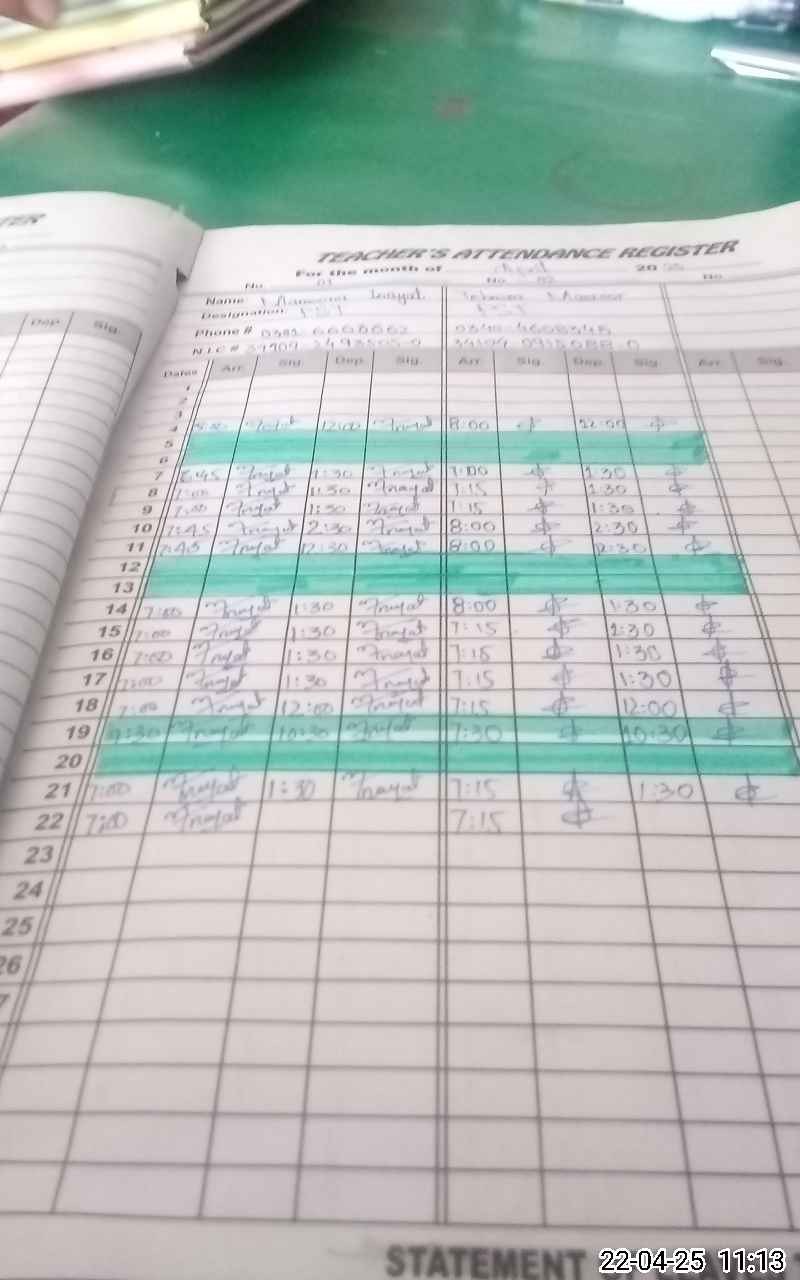 TER
TEACHER'S ATTENDANCE REGISTER
For the month of April 20 25
No. 01 No 02 No.
Name Inayat
Designation: EST EST
Phone #
N.I.C #
Dep. Sig.
Dates Arr. Sig. Dep. Sig. Arr. Sig. Dep. Sig. Arr. Sig.
1
2
3
4 8:00 Inayat 12:00 Inayat 8:00 12:00
5
6
7 Inayat 1:30 Inayat 7:00 1:30
8 7:00 Inayat 1:30 Inayat 7:15 1:30
9 7:00 Inayat 1:30 Inayat 7:15 1:30
10 7:45 Inayat 2:30 Inayat 8:00 2:30
11 7:45 Inayat 12:30 Inayat 8:00 12:30
12
13
14 7:00 Inayat 1:30 Inayat 8:00 1:30
15 7:00 Inayat 1:30 Inayat 7:15 1:30
16 7:00 Inayat 1:30 Inayat 7:15 1:30
17 7:00 Inayat 1:30 Inayat 7:15 1:30
18 7:00 Inayat 12:00 Inayat 7:15 12:00
19 9:30 Inayat 10:30 Inayat 7:30 10:30
20
21 7:00 Inayat 1:30 Inayat 7:15 1:30
22 7:00 Inayat 7:15
23
24
25
26
7
STATEMENT
22-04-25 11:13